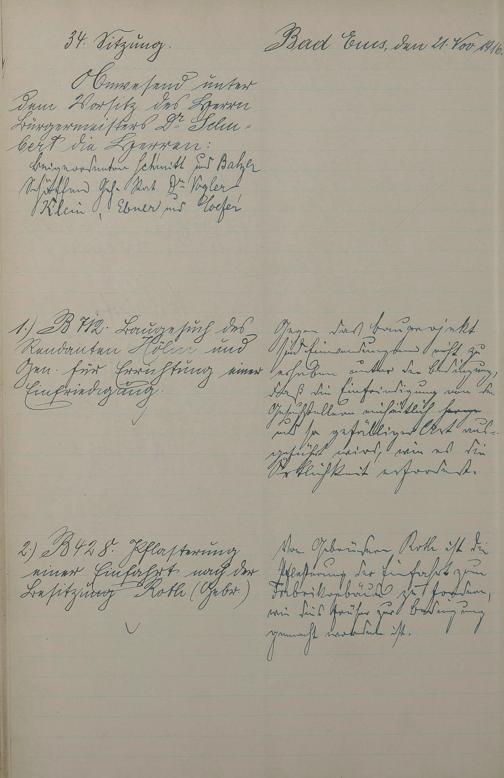 34. Sitzung.
Bad Ems, den 21. Nov. 1916.
Anwesend unter
dem Vorsitz des Herrn
Bürgermeisters Dr. Schu-
bert die Herren:
Beigeordneten Schmitt und Balzer
Schöffen Geh. Rat Dr. Vogler
Klein, Ebner und
1.) B 712. Baugesuch des
Rendanten Höhn und
Gen. für Errichtung einer
Einfriedigung.
Gegen das Bauprojekt
sind Einwendungen nicht zu
erheben unter der Bedingung,
daß die Einfriedigung von den
Gesuchstellern einheitlich
und in gefälliger Art aus-
geführt wird, wie es die
Örtlichkeit erfordert.
2.) B 428. Pflasterung
einer Einfahrt nach der
Besitzung Roth (Gebr.)
Von Gebrüdern Roth ist die
Pflasterung der Einfahrt zum
Fabrikgebäude zu fordern,
wie dies früher zur Bedingung
gemacht worden ist.